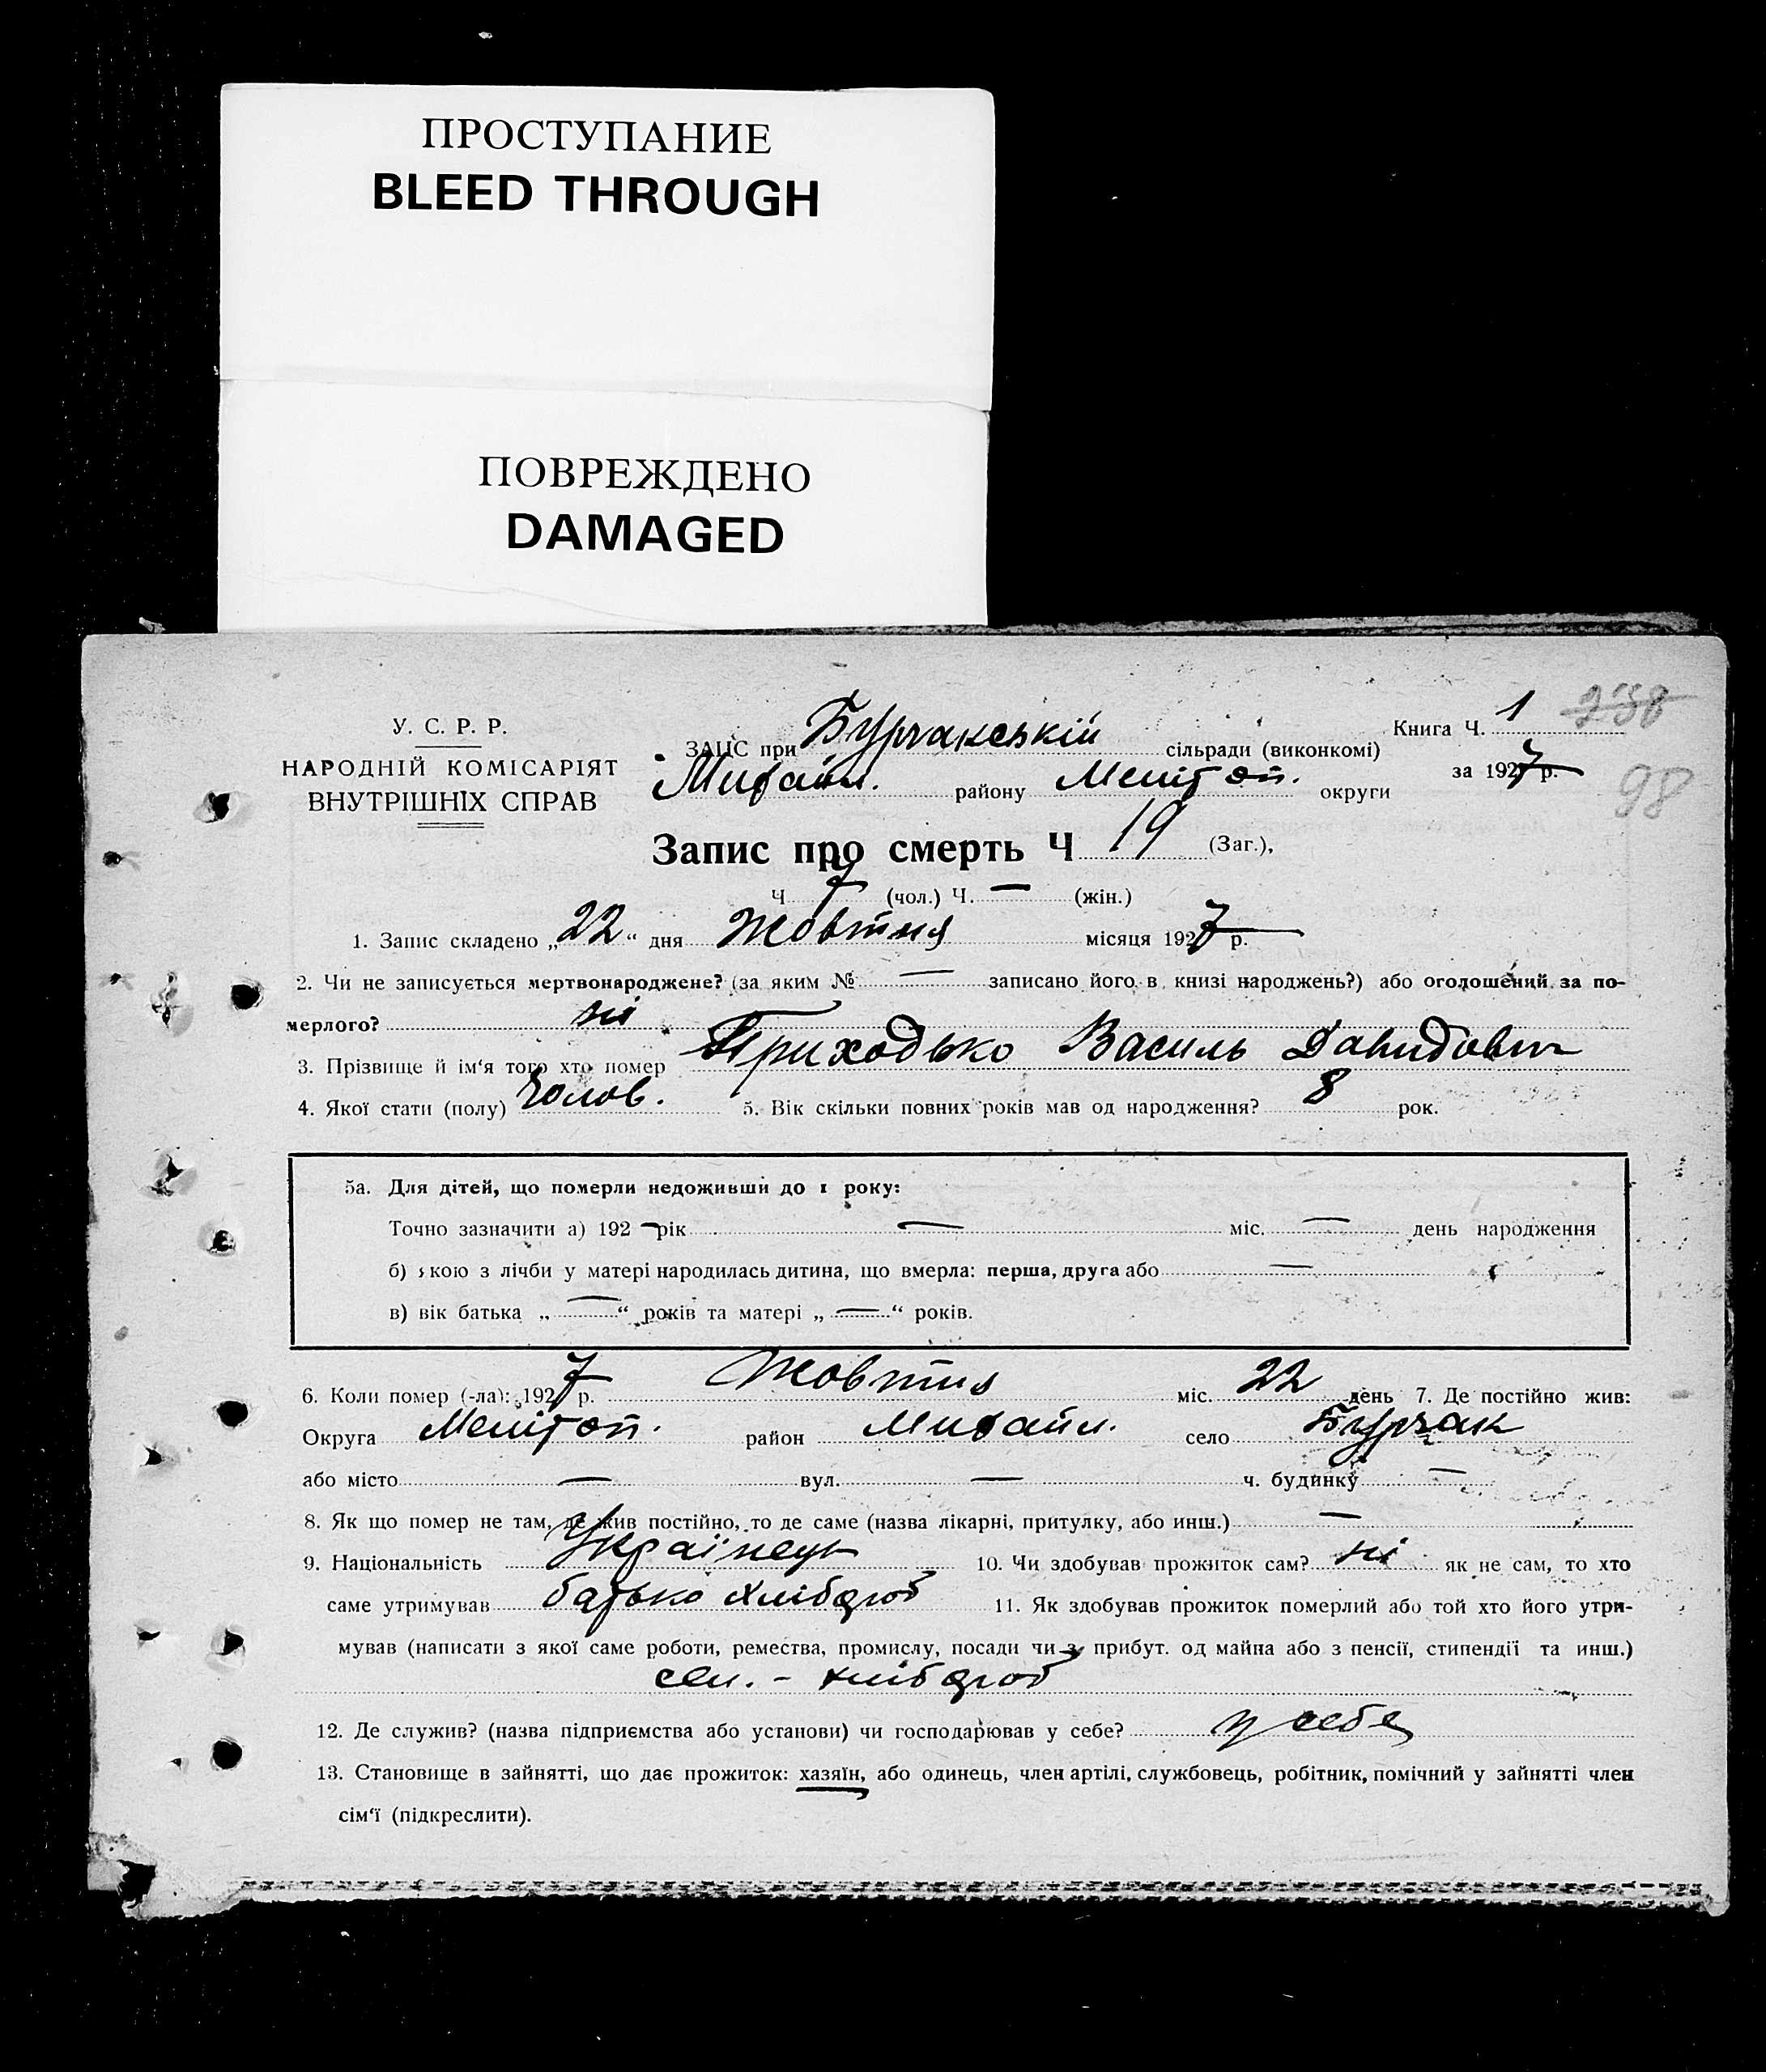 ПРОСТУПАНИЕ
BLEED THROUGH
ПОВРЕЖДЕНО
DAMAGED
У. С. Р. Р.
НАРОДНІЙ КОМІСАРІЯТ
ВНУТРІШНІХ СПРАВ
ЗАЦС при Бурчакській сільради (виконкомі)
Михайл. району Меліт оп. округи
Книга Ч. 1 238
за 1927 р.
98
Запис про смерть Ч 19 (Заг.),
Ч 7 (чол.) Ч. — (жін.)
1. Запис складено „22“ дня Жовтня місяця 1927 р.
2. Чи не записується мертвонароджене? (за яким № — записано його в книзі народжень?) або оголошений за по-
мерлого? ні
3. Прізвище й ім‘я того хто помер Приходько Василь Давидович
4. Якої стати (полу) Чолов. 5. Вік скільки повних років мав од народження? 8 рок.
5а. Для дітей, що померли недоживши до 1 року:
Точно зазначити а) 192 — рік — міс. — день народження
б) якою з лічби у матері народилась дитина, що вмерла: перша, друга або —
в) вік батька „—“ років та матері „—“ років.
6. Коли помер (-ла): 1927 р. Жовтня міс. 22 день 7. Де постійно жив:
Округа Меліт оп. район Михайл. село Бурчак
або місто — вул. — ч. будинку —
8. Як що помер не там, де жив постійно, то де саме (назва лікарні, притулку, або инш.) —
9. Національність Українець 10. Чи здобував прожиток сам? ні як не сам, то хто
саме утримував батько хлібороб 11. Як здобував прожиток померлий або той хто його утри-
мував (написати з якої саме роботи, ремества, промислу, посади чи з прибут. од майна або з пенсії, стипендії та инш.)
сел. - хлібороб
12. Де служив? (назва підприємства або установи) чи господарював у себе? у себе
13. Становище в зайнятті, що дає прожиток: хазяїн, або одинець, член артілі, службовець, робітник, помічний у зайнятті член
сім‘ї (підкреслити).